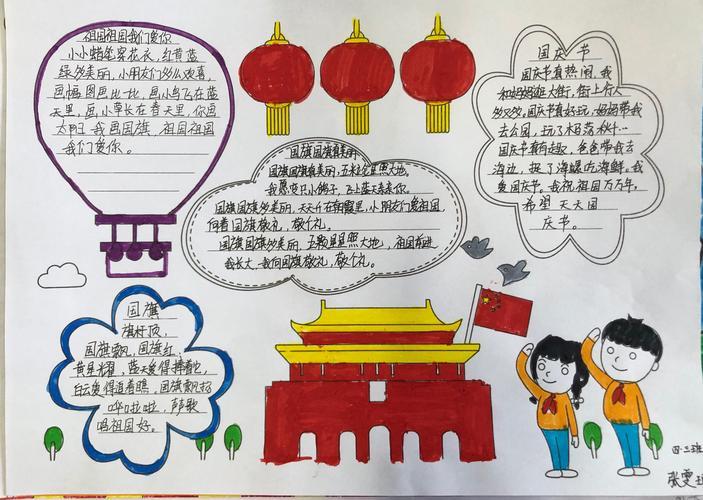 祖国祖国我们爱你
小小蜡笔穿花衣，红黄蓝
绿多美丽，小朋友们多么欢喜，
画幅图画比一比，画小鸟飞在蓝
天里，画小草长在春天里，你画
太阳我画国旗，祖国祖国
我们爱你。
国旗国旗真美丽
国旗国旗真美丽，五米金星照大地，
我愿变只小鸽子，飞上蓝天亲亲你。
国旗国旗多美丽，天天升在朝霞里，小朋友们爱祖国，
向着国旗敬礼，敬个礼。
国旗国旗多美丽，五颗星星照大地，祖国前进
我长大，我向国旗敬礼，敬个礼。
国庆节
国庆节真热闹，我
和妈妈逛大街，街上行人
多又多，国庆节真好玩，妈妈带我
去公园，玩了木马荡秋千…
国庆节真有趣，爸爸带我去
海边，捉了海螺吃海鲜。我
爱国庆节。我祝祖国万万年，
希望天天国
庆节。
国旗
旗杆顶，
国旗飘，国旗红，
黄星耀，蓝天爱得捧着它，
白云爱得追着瞧，国旗飘扬
哗啦啦，声声歌
唱祖国好。
四·三班
张雯